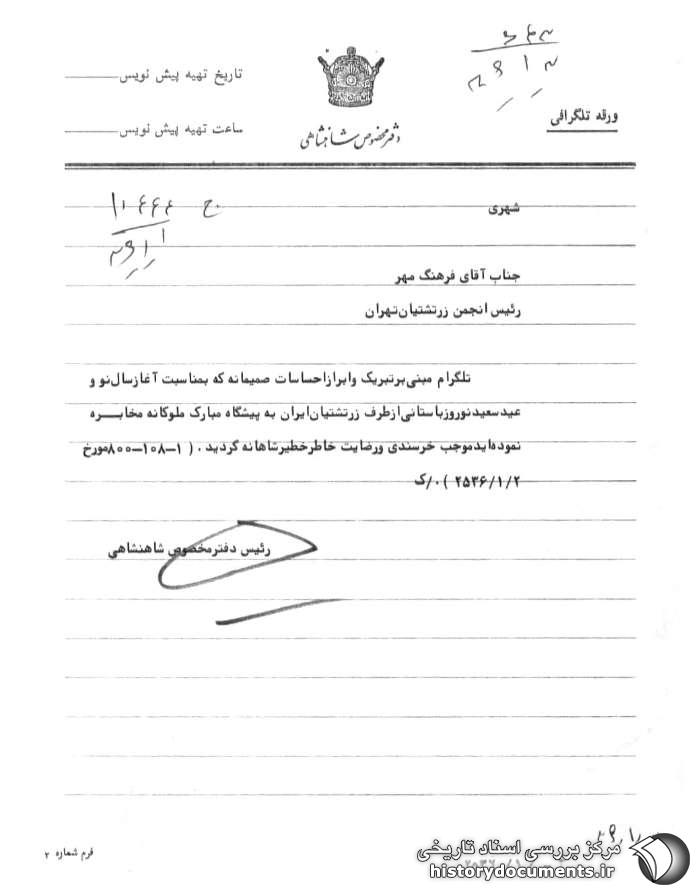 تاریخ تهیه پیش نویس
ساعت تهیه پیش نویس
دفتر مخصوص شاهنشاهی
ورقه تلگرافی
شهری
جناب آقای فرهنگ مهر
رئیس انجمن زرتشتیان تهران
تلگرام مبنی بر تبریک و ابراز احساسات صمیمانه که بمناسبت آغاز سال نو و
عید سعید نوروز باستانی از طرف زرتشتیان ایران به پیشگاه مبارک ملوکانه مخابره
نموده اید موجب خرسندی و رضایت خاطر خطیر شاهانه گردید . ( ۱-۱۰۸-۸۰۰ مورخ
۲۵۳۶/۱/۲ ) ۰/ک
رئیس دفتر مخصوص شاهنشاهی
فرم شماره ۲
مرکز بررسی اسناد تاریخی
historydocuments.ir